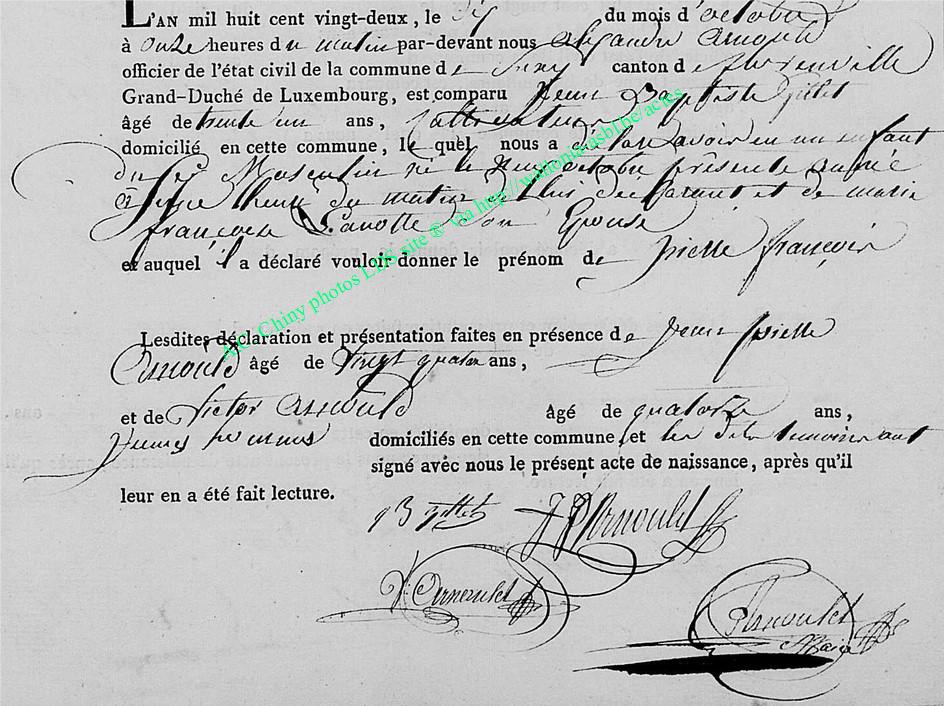 L'AN mil huit cent vingt-deux, le dix du mois d'octobre
à onze heures du matin par-devant nous Alexandre Arnould
officier de l'état civil de la commune de Suxy canton de florenville
Grand-Duché de Luxembourg, est comparu Jean Baptiste Gillet
âgé de trente un ans,
domicilié en cette commune, le quel nous a déclare avoir eu un enfant
du sex Masculin né le neuf octobre présente année
à heure du matin de lui declarant et de marie
françoise son Epouse
et auquel il a déclaré vouloir donner le prénom de pierre françois
Lesdites déclaration et présentation faites en présence de Jean pierre
Arnould âgé de vingt quatre ans,
et de Victor Arnould âgé de quatorze ans,
jeunes hommes domiciliés en cette commune, et les dits temoins ont
signé avec nous le présent acte de naissance, après qu'il
leur en a été fait lecture.
JB gillet JP Arnould
V: Arnould
Arnould
Maire
A.C. Chiny photos LDS site ® via http://wallonia-asbl.be/actes